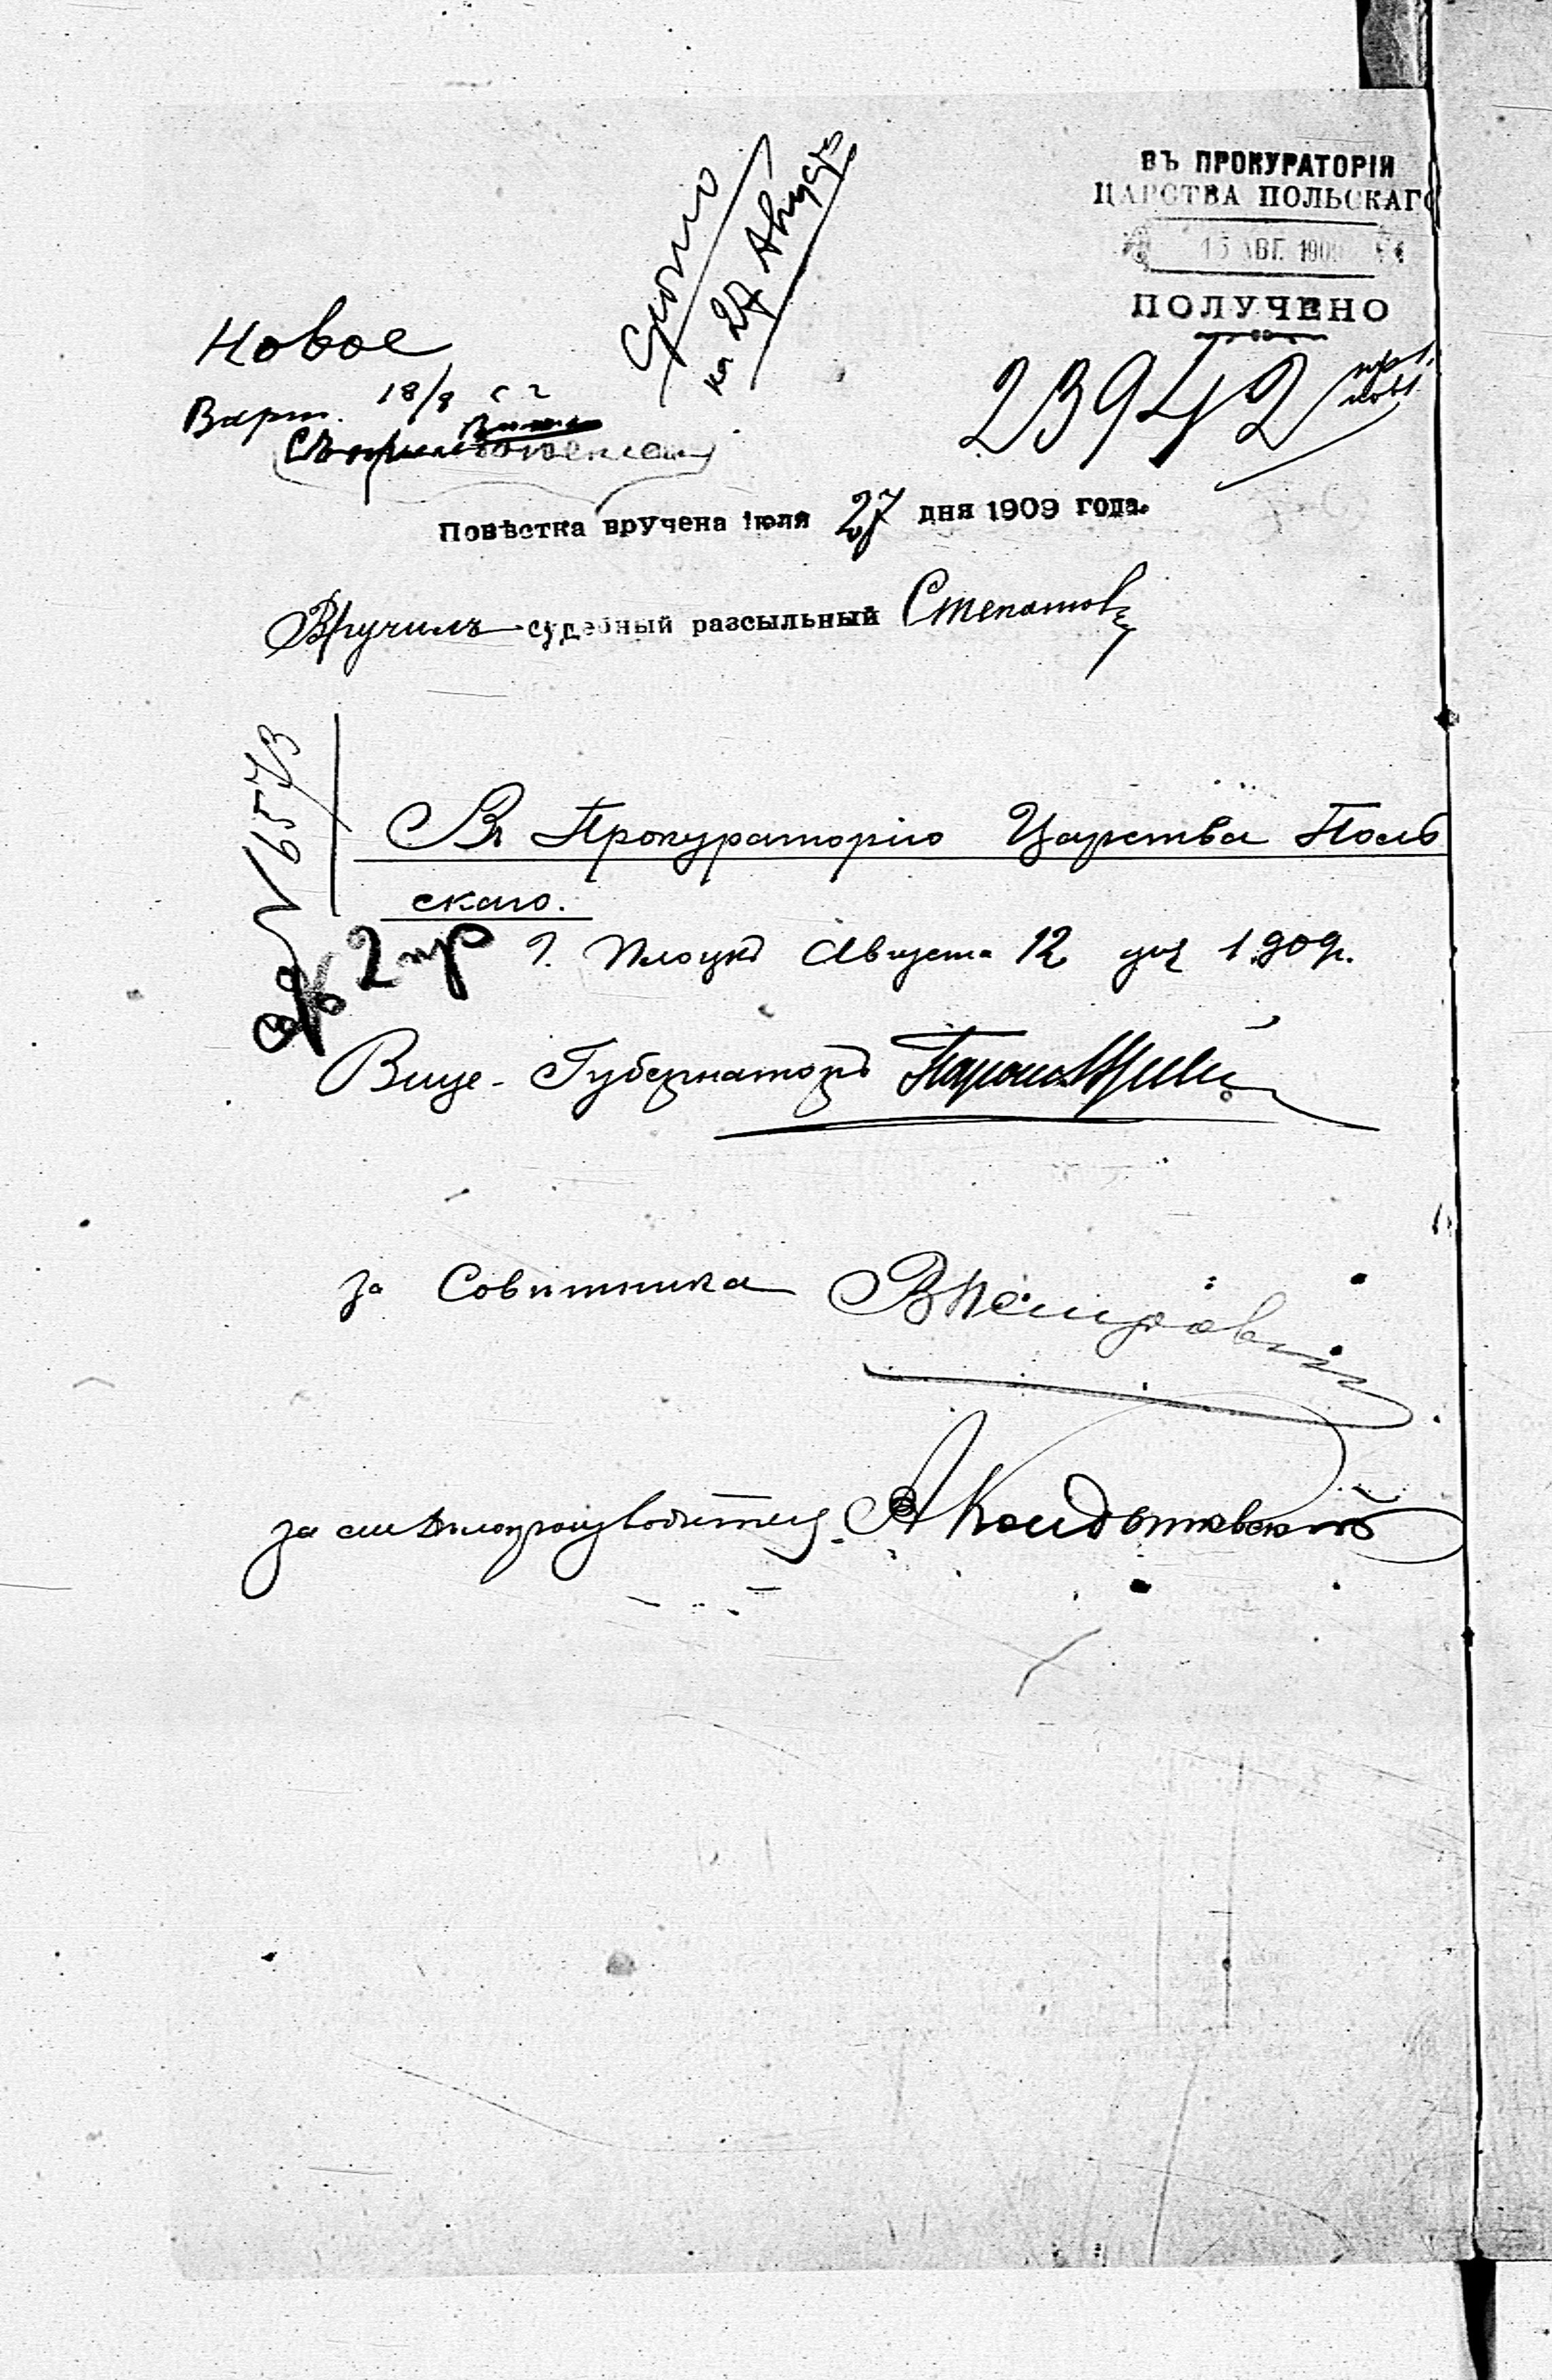 ВЪ ПРОКУРАТОРІИ
ЦАРСТВА ПОЛЬСКАГО
15 АВГ. 1909
ПОЛУЧЕНО
Срочно
на 27 Августа
Новое
Варш. 18/8 с г
23942
Повѣстка вручена Іюля 27 дня 1909 года.
Вручилъ судебный разсыльный Степановъ
№ 6573
Въ Прокураторію Царства Поль
скаго.
2 пр
г. Плоцкъ Августа 12 дня 1909 г.
Вице-Губернаторъ
за Совѣтника
за Дѣлопроизводителя